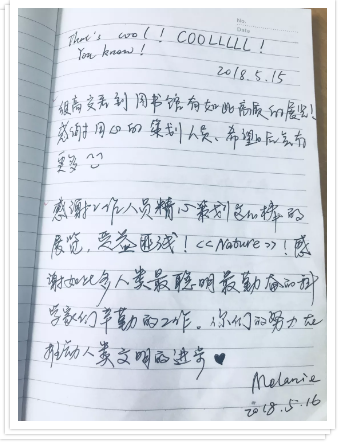 No.
Date
That's cool! COOLLLLL!
You know!
2018.5.15
很高兴看到图书馆有如此高质的展览!
感谢用心的策划人员、希望以后会有
更多
感谢工作人员精心策划这样的
展览,受益匪浅!<<Nature>>!感
谢如此多人类最聪明最勤奋的科
学家们辛勤的工作。你们的努力在
推动人类文明的进步♥
Melanie
2018.5.16